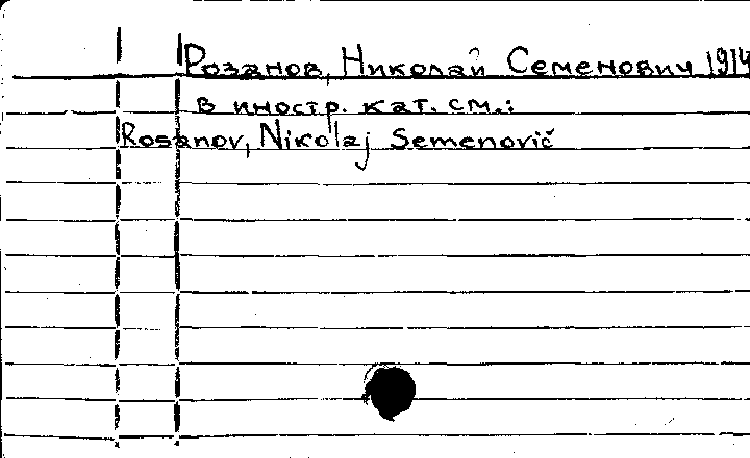 Розанов, Николай Семенович 1914
в иностр. кат. см.:
Rosanov, Nikolaj Semenovič